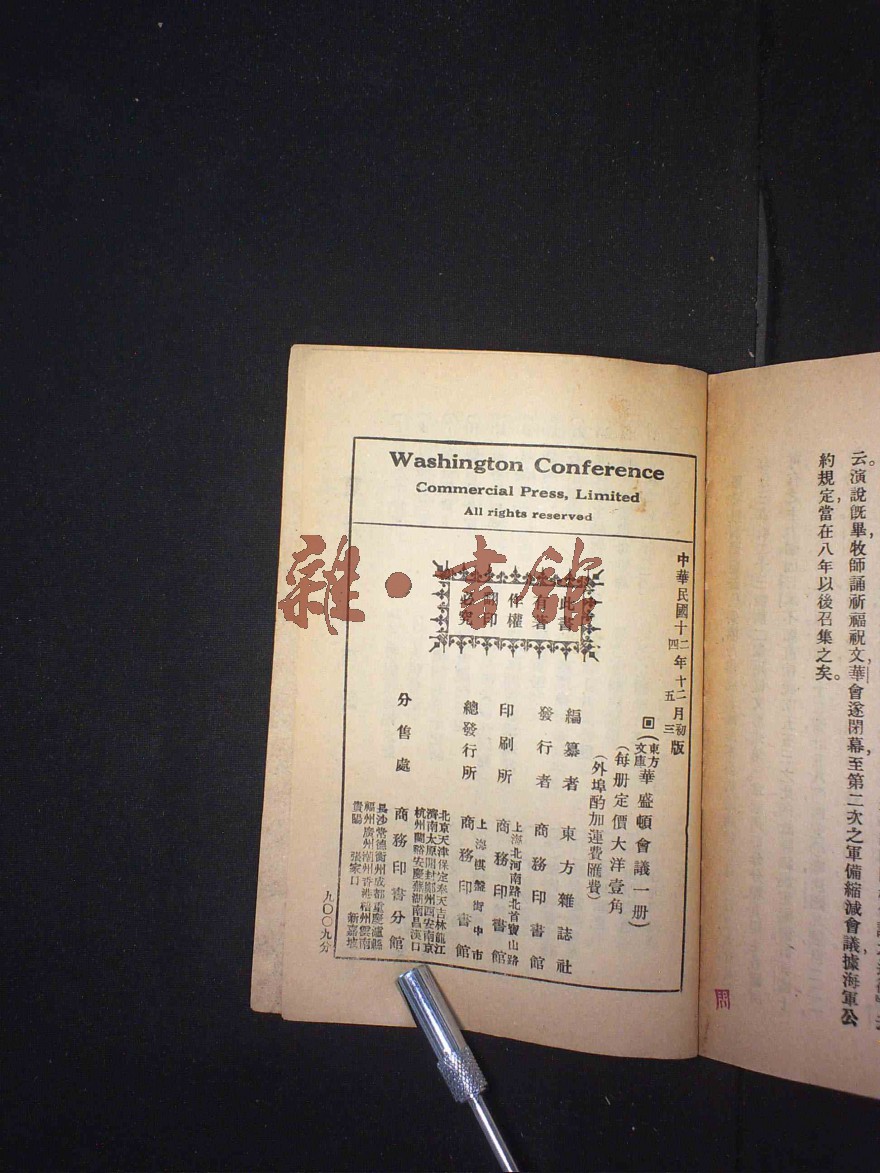 Washington Conference
Commercial Press, Limited
All rights reserved
中華民國十二年十二月初版
四 五 三
此書
有著
作權
翻印
必究
(東方文庫)華盛頓會議一册)
(每册定價大洋壹角
(外埠酌加運費匯費)
編纂者 東方雜誌社
發行者 商務印書館
印刷所 上海北河南路北首寶山路 商務印書館
總發行所 上海棋盤街中市 商務印書館
分售處 北京天津保定奉天吉林龍江
濟南太原開封鄭州西安南京
杭州蘭谿安慶蕪湖南昌漢口
商務印書分館
長沙常德衡州成都重慶瀘縣
福州廣州潮州香港梧州雲南
貴陽 張家口 新嘉坡
九〇〇九分
雜·書館
云。演說旣畢,牧師誦祈福祝文,華會遂閉幕至第二次之軍備縮減會議,據海軍公
約規定,當在八年以後召集之矣。